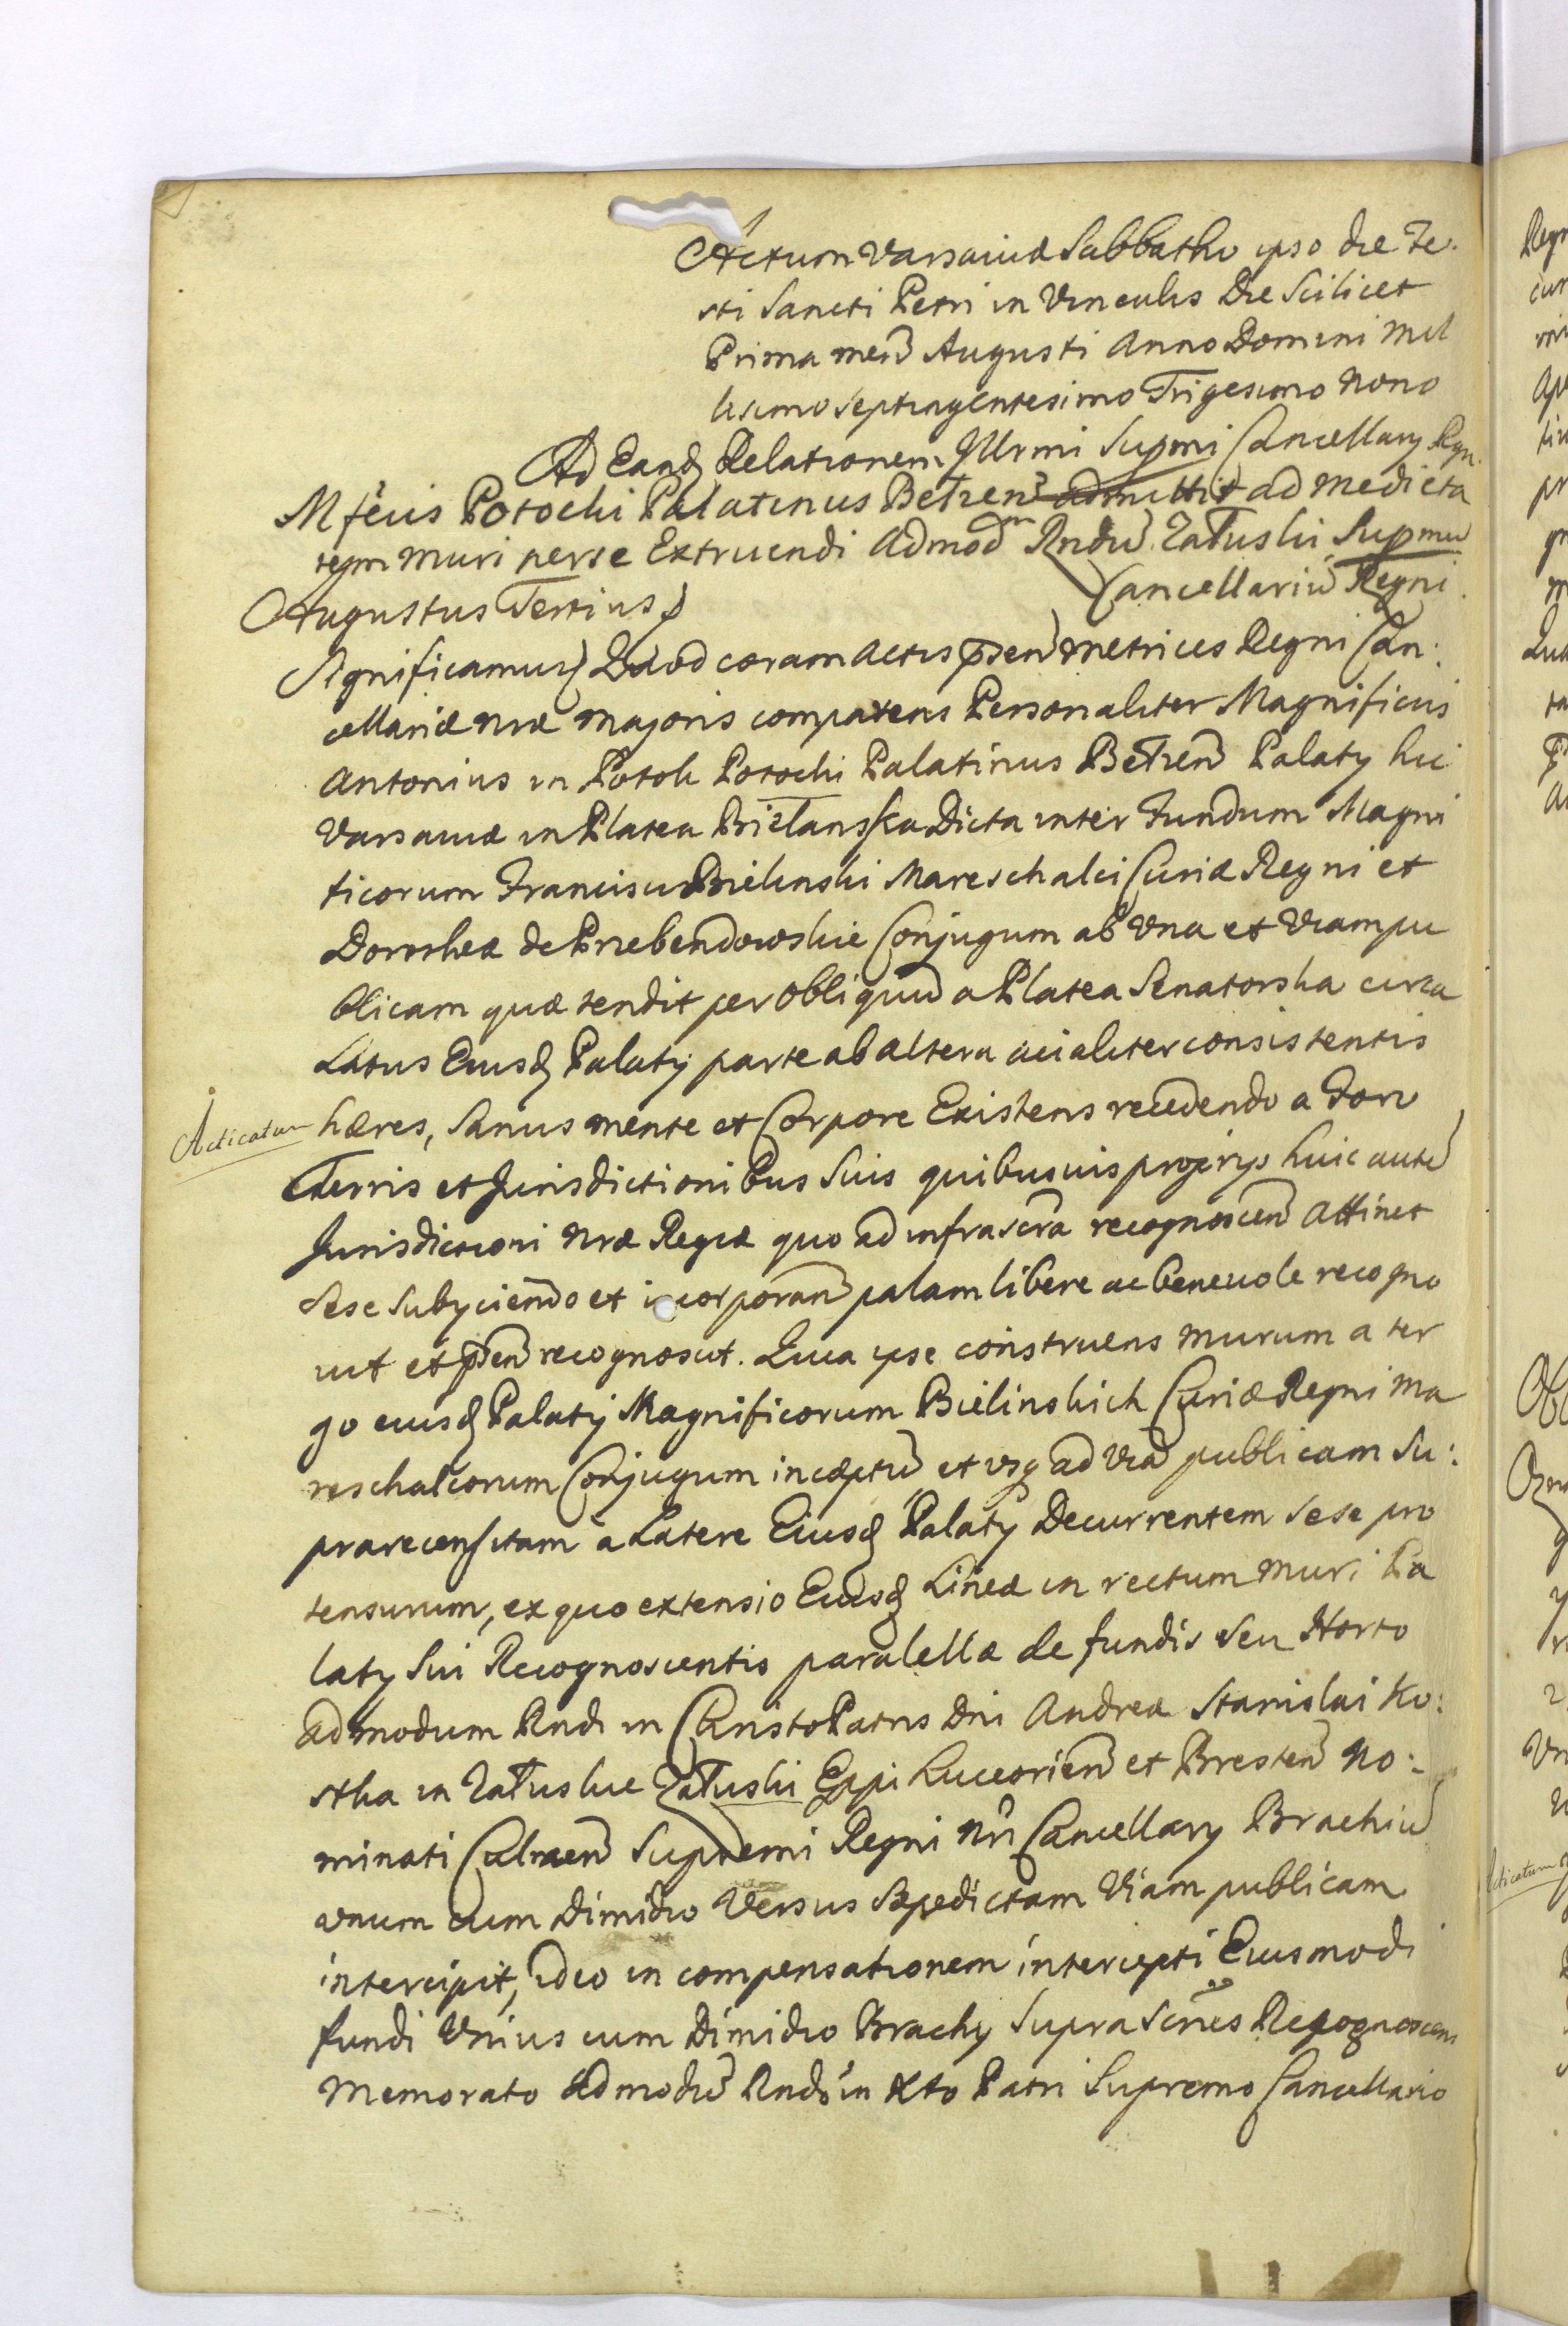 Actum Varsaviæ Sabbatho ipso die Fe-
sti Sancti Petri in Vinculis Die Scilicet
Prima mens Augusti Anno Domini Mil
lesimo Septingentesimo Trigesimo Nono
Ad Eandq Relationem Illrmi Supmi Cancellary Regni
Mfcus Potocki Palatinus Bełzens admittit ad medieta
tem muri per se Extruendi Admodm Rndu Załuski Supmu
Cancellariu Regni
Augustus Tertius
Significamus Quod coram Actis psen Metrices Regni Can:
cellariæ Nræ Majoris comparens Personaliter Magnificus
Antonius in Potok Potocki Palatinus Bełzen Palaty hic
Varsaviæ in Platea Bielanska Dicta inter Fundum Magni
ficorum Francisci Bielinski Mareschalci Curiæ Regni et
Dorotheæ de Przebendowskie Conjugum ab Una et Viam pu
blicam quæ tendit per Obliquu a Platea Senatorska circa
Latus Eiusdq Palaty parte ab altera acialiter consistentis
Acticatum
hæres, Sanus mente et Corpore Existens recedendo a Foro
Terris et Jurisdictionibus Suis quibusvis proprys huic aute
Jurisdictioni Nræ Regiæ quo ad infrascra recognoscen Attinet
Sese Subyciendo et incorporan palam libere ac benevole recogno
vit et psen recognoscit. Quia ipse construens murum a ter
go eiusdq Palaty Magnificorum Bielinskich Curiæ Regni Ma
reschalcorum Conjugum incæptu et usq ad Via publicam Su:
prarecensitam à Latere Eiusdq Palaty Decurrentem sese pro
tensurum, ex quo extensio Eiusdq Lineæ in rectum Muri Pa
laty Sui Recognoscentis paralellæ de fundis seu Horto
admodum Rndi in Christo Patris Dni Andreæ Stanislai Ko:
stka in Załuskie Załuski Eppi Luceorien et Bresten No:
minati Culmen Supremi Regni Nri Cancellary Brachiu
unum cum Dimidio Versus Sæpedictam Viam publicam
intercipit, ideo in compensationem intercepti Eiusmodi
fundi Unius cum Dimidio Brachy Supra Scries Recognoscens
Memorato Admodu Rndo in Xto Patri Supremo Cancellario